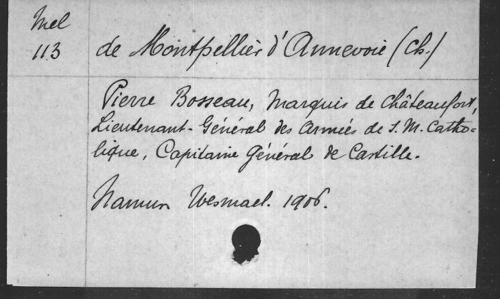 Mel
113
de Montpellier d'Annevoie (Ch.)
Pierre Bosseau, Marquis de Châteaufort,
Lieutenant-Général des Armées de S. M. Catho-
lique, Capitaine Général de Castille.
Namur Wesmael. 1906.